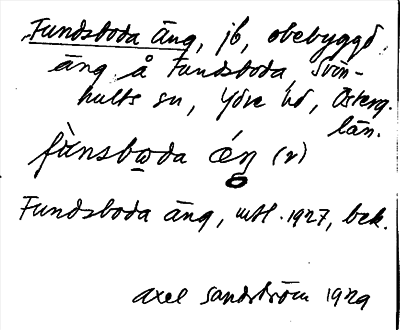 Fundsboda äng, jb, obebyggd
äng å Fundsboda, Svin-
hults sn, Ydre hd, Österg.
län.
fùnsboda ǽŋ (2)
Fundsboda äng, mtl. 1927, bek.
Axel Sandström 1929